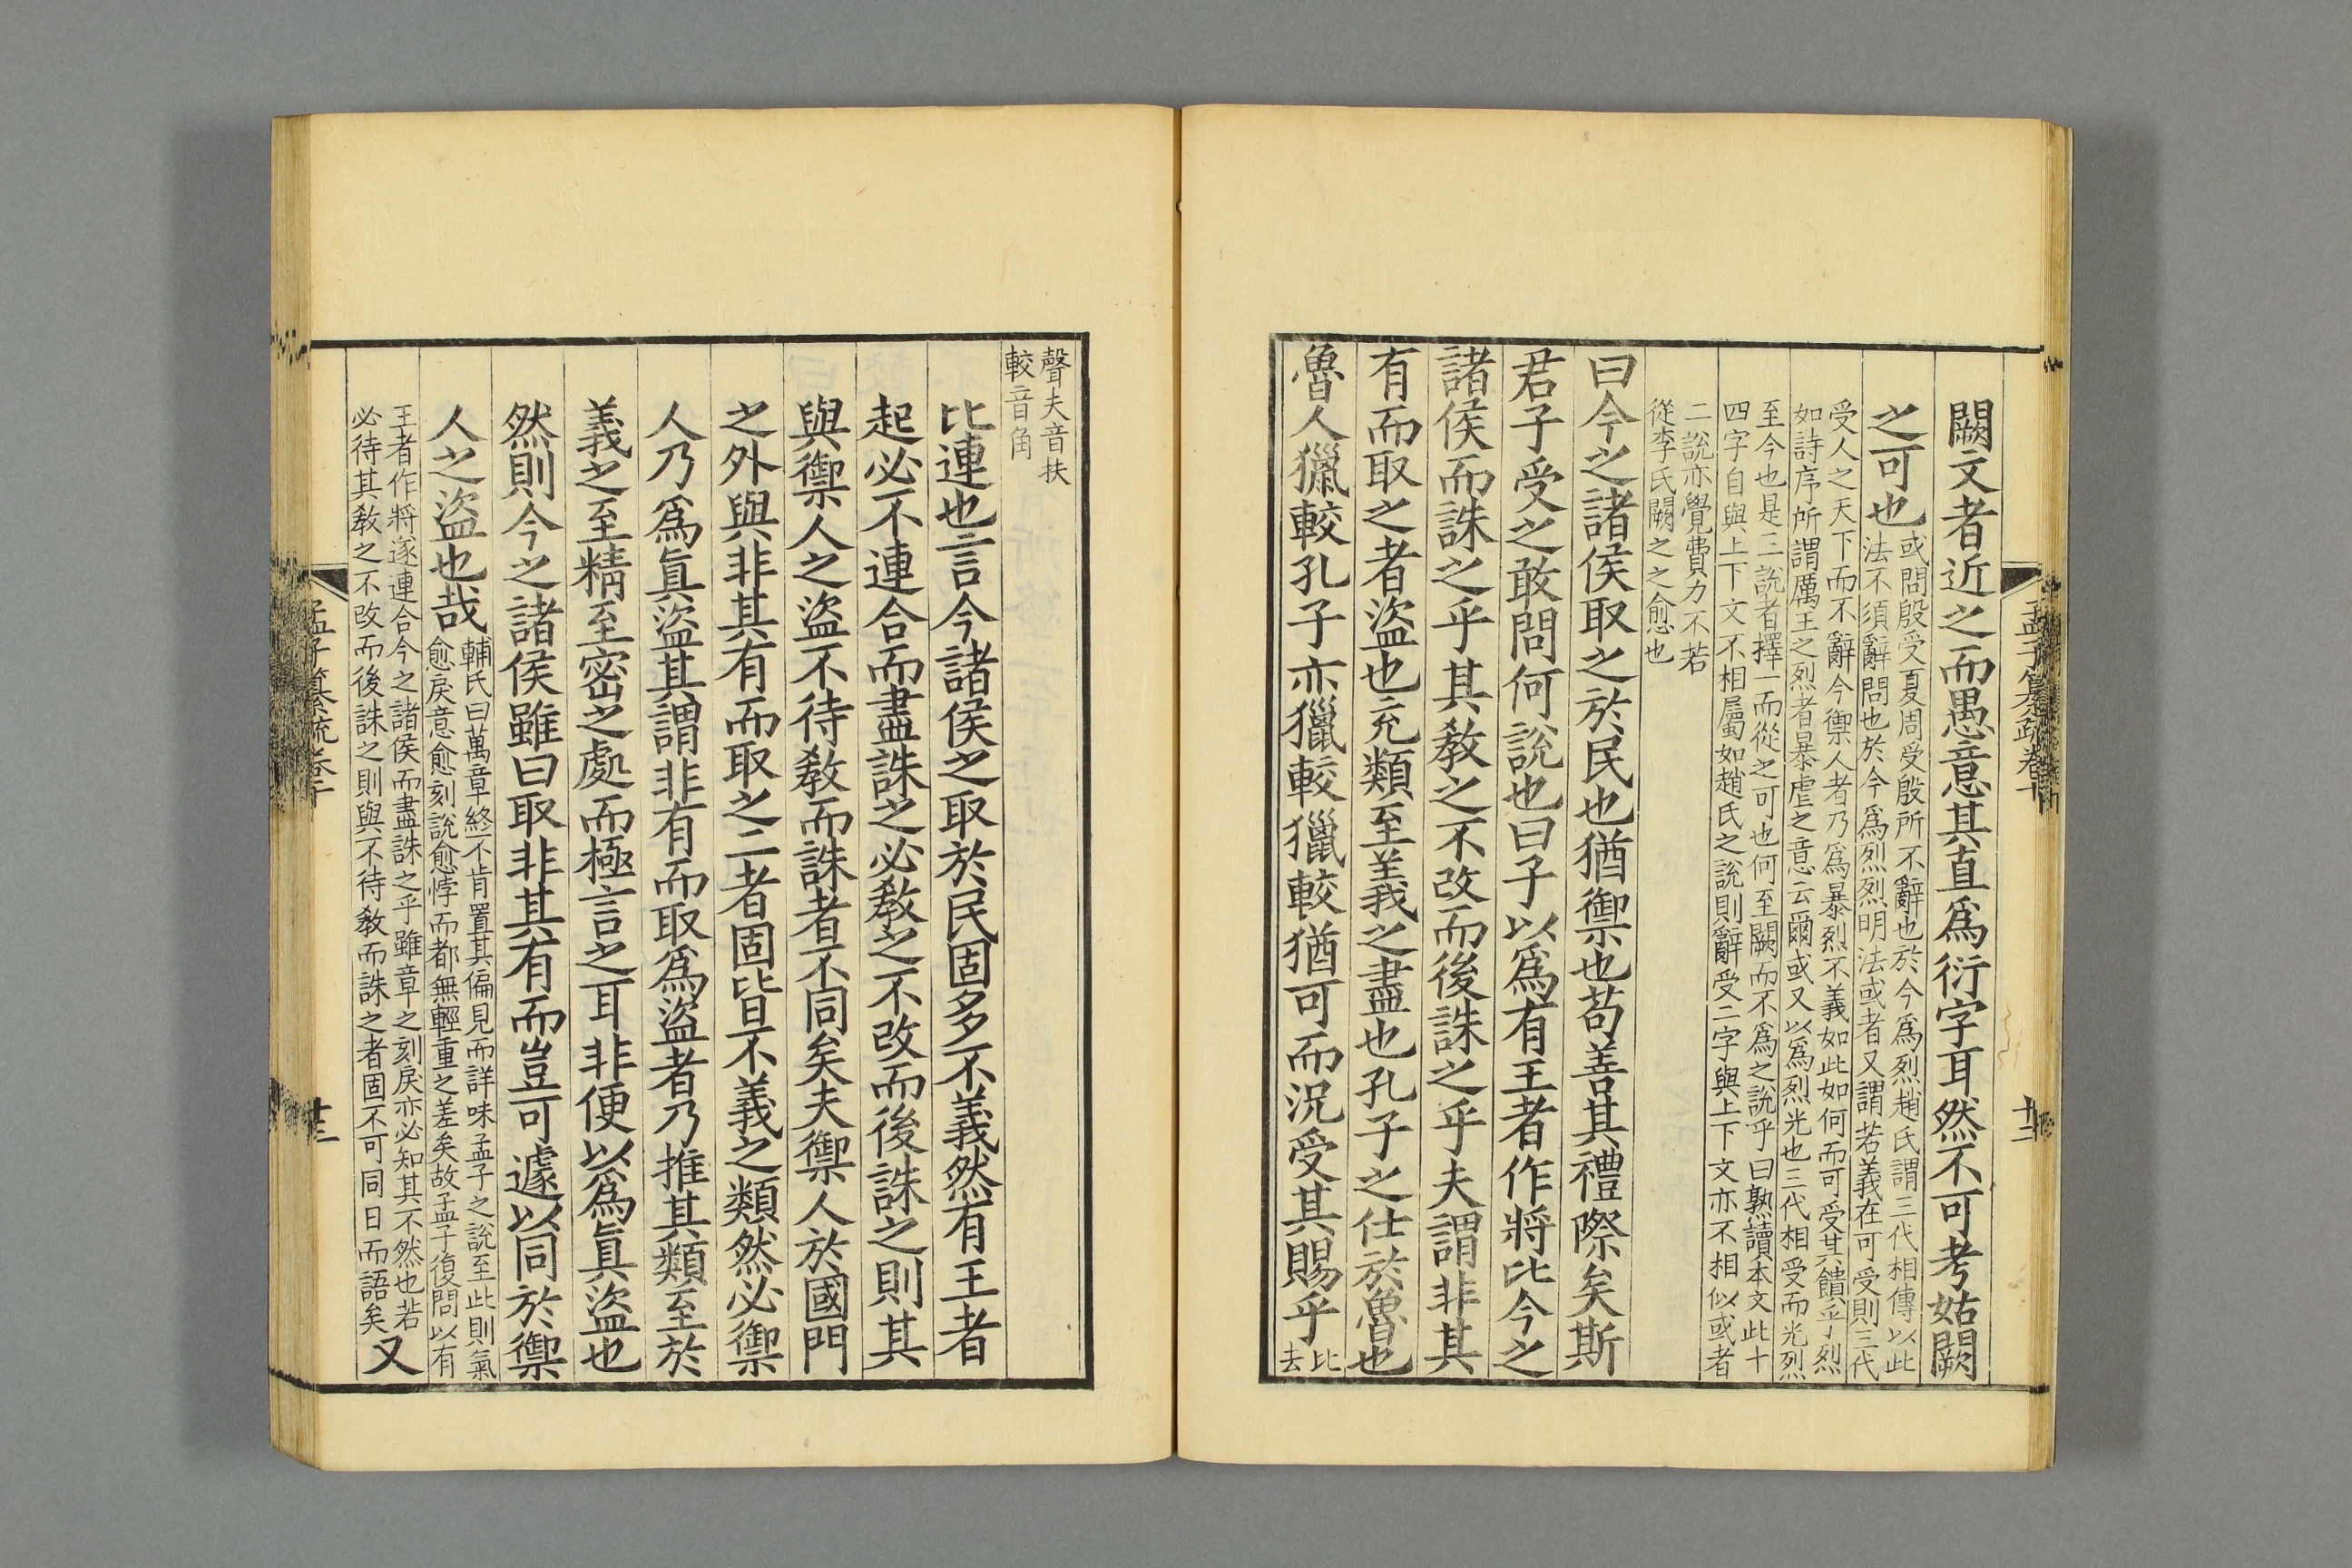 孟子纂疏卷十
十二
闕文者近之而愚意其直爲衍字耳然不可考姑闕
之可也
或問殷受夏周受殷所不辭也於今爲烈趙氏謂三代相傳以此
法不須辭問也於今爲烈烈明法或者又謂若義在可受則三代
受人之天下而不辭今禦人者乃爲暴烈不義如此如何而可受其饋乎烈
如詩序所謂厲王之烈者暴虐之意云爾或又以爲烈光也三代相受而光烈
至今也是三說者擇一而從之可也何至闕而不爲之說乎曰熟讀本文此十
四字自與上下文不相屬如趙氏之說則辭受二字與上下文亦不相似或者
二說亦覺費力不若
從李氏闕之之愈也
曰今之諸侯取之於民也猶禦也苟善其禮際矣斯
君子受之敢問何說也曰子以爲有王者作將比今之
諸侯而誅之乎其教之不改而後誅之乎夫謂非其
有而取之者盜也充類至義之盡也孔子之仕於魯也
魯人獵較孔子亦獵較獵較猶可而況受其賜乎
比
去
聲夫音扶
較音角
比連也言今諸侯之取於民固多不義然有王者
起必不連合而盡誅之必教之不改而後誅之則其
與禦人之盜不待教而誅者不同矣夫禦人於國門
之外與非其有而取之二者固皆不義之類然必禦
人乃爲眞盜其謂非有而取爲盜者乃推其類至於
義之至精至密之處而極言之耳非便以爲眞盜也
然則今之諸侯雖曰取非其有而豈可遽以同於禦
人之盜也哉
輔氏曰萬章終不肯置其偏見而詳味孟子之說至此則氣
愈戾意愈刻說愈悖而都無輕重之差矣故孟子復問以有
王者作將遂連合今之諸侯而盡誅之乎雖章之刻戾亦必知其不然也若
必待其教之不改而後誅之則與不待教而誅之者固不可同日而語矣
又
孟子纂疏卷十
十三